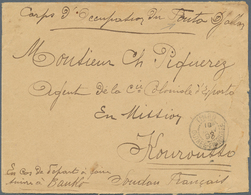 Corps d'Occupation du Fouta Djalon
Monsieur Ch. Piquerez
Agent de la Cie Coloniale d'Exporta
En Mission
Kouroussa
En Cas de départ à faire
suivre à
Soudan Français